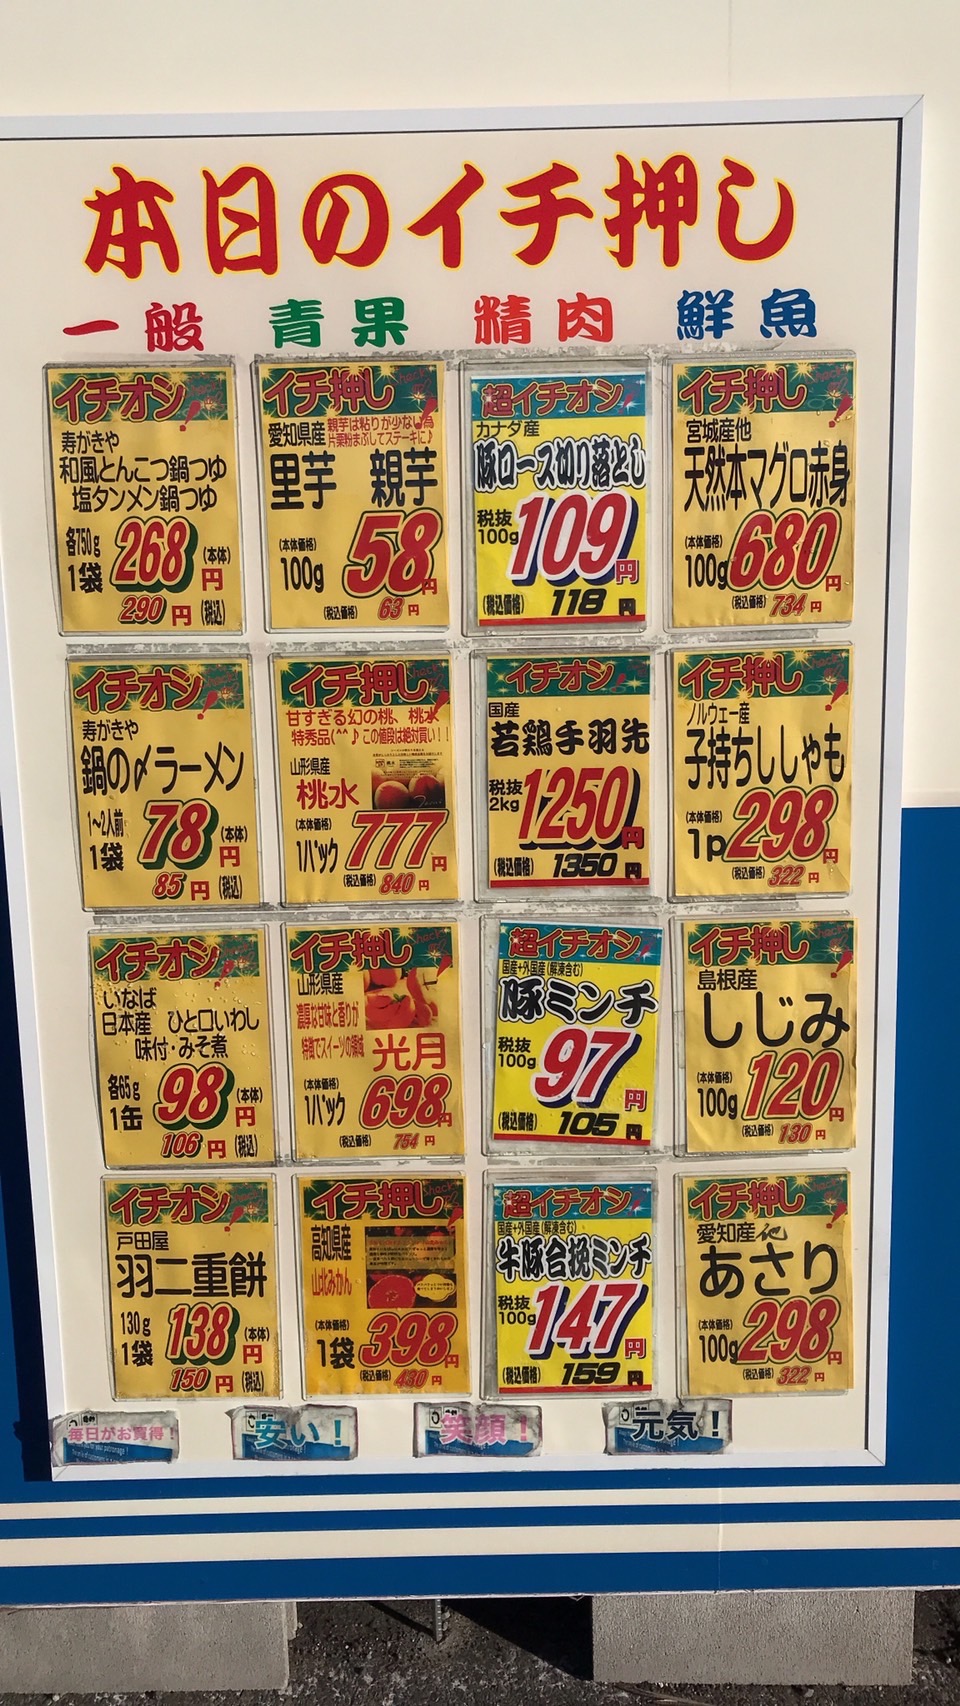 本日のイチ押し
一般 青果 精肉 鮮魚
イチオシ!
寿がきや
和風とんこつ鍋つゆ
塩タンメン鍋つゆ
各750g
1袋
268円(本体)
290円(税込)
イチ押し!
愛知県産
親芋は粘りが少ない為
片栗粉まぶしてステーキに♪
里芋 親芋
(本体価格)
100g
58円
(税込価格) 63円
超イチオシ!
カナダ産
豚ロース切り落とし
税抜
100g
109円
(税込価格) 118円
イチ押し!
宮城産他
天然本マグロ赤身
(本体価格)
100g
680円
(税込価格) 734円
イチオシ!
寿がきや
鍋の〆ラーメン
1〜2人前
1袋
78円(本体)
85円(税込)
イチ押し!
甘すぎる幻の桃、桃水
特秀品(^^♪この値段は絶対買い!!
山形県産
桃水
(本体価格)
1パック
777円
(税込価格) 840円
イチオシ!
国産
若鶏手羽先
税抜
2kg
1250円
(税込価格) 1350円
イチ押し!
ノルウェー産
子持ちししゃも
(本体価格)
1p
298円
(税込価格) 322円
イチオシ!
いなば
日本産 ひと口いわし
味付・みそ煮
各65g
1缶
98円(本体)
106円(税込)
イチ押し!
山形県産
濃厚な甘味と香りが
特徴でスイーツの領域
光月
(本体価格)
1パック
698円
(税込価格) 754円
超イチオシ!
国産+外国産(解凍含む)
豚ミンチ
税抜
100g
97円
(税込価格) 105円
イチ押し!
島根産
しじみ
(本体価格)
100g
120円
(税込価格) 130円
イチオシ!
戸田屋
羽二重餅
130g
1袋
138円(本体)
150円(税込)
イチ押し!
高知県産
山北みかん
(本体価格)
1袋
398円
(税込価格) 430円
超イチオシ!
国産+外国産(解凍含む)
牛豚合挽ミンチ
税抜
100g
147円
(税込価格) 159円
イチ押し!
愛知産他
あさり
(本体価格)
100g
298円
(税込価格) 322円
毎日がお買得! 安い! 笑顔! 元気!